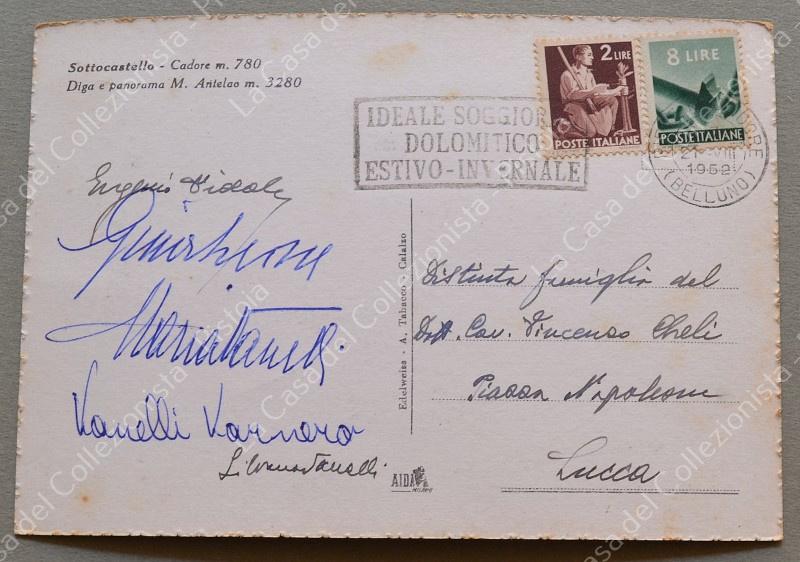 Sottocastello - Cadore m. 780
Diga e panorama M. Antelao m. 3280
IDEALE SOGGIOR
DOLOMITICO
ESTIVO-INVERNALE
2 LIRE
POSTE ITALIANE
8 LIRE
POSTE ITALIANE
21 VIII
1952
(BELLUNO)
Eugenio
Vanelli
Silvana Vanelli
Edelweiss - A. Tabacco - Calalzo
Distinta famiglia del
Dott. Cav. Vincenzo Cheli
Piazza Napoleone
Lucca
AIDA
MILANO
La Casa del Collezionista